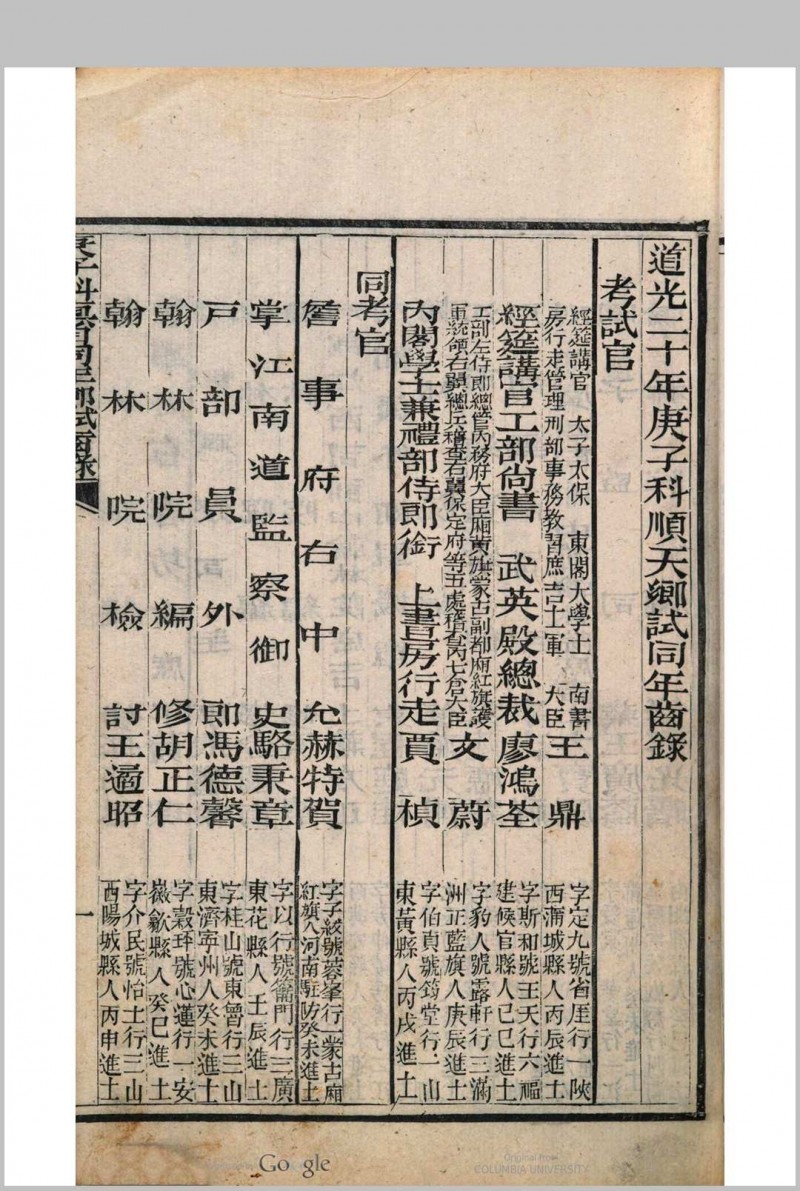 道光二十年庚子科順天鄉試同年齒錄
考試官
經筵講官 太子太保 東閣大學士 南書
房行走管理刑部事務教習庶吉士軍 大臣王 鼎
字定九號省厓行一陝
西蒲城縣人丙辰進士
經筵講官工部尚書 武英殿總裁廖鴻荃
字斯和號玉天行六福
建候官縣人己巳進士
工部左侍郎總管內務府大臣廂黃旗蒙古副都廂紅旗護
軍統領右翼總兵稽查右翼保定府等五處稽查內七倉大臣文 蔚
字豹人號露軒行三滿
洲正藍旗人庚辰進士
內閣學士兼禮部侍郎銜 上書房行走賈 楨
字伯貞號筠堂行一山
東黃縣人丙戌進士
同考官
詹事府右中允赫特賀
字子紱號蓉峯行一蒙古廂
紅旗人河南駐防癸未進士
掌江南道監察御史駱秉章
字以行號籥門行三廣
東花縣人壬辰進士
戶部員外郎馮德馨
字桂山號東曾行三山
東濟寧州人癸未進士
翰林院編修胡正仁
字穀環號心蓮行一安
徽歙縣人癸巳進士
翰林院檢討王遹昭
字介民號怡士行三山
西陽城縣人丙申進士
庚子科直省同年鄉試齒錄
一
Google
Original from
COLUMBIA UNIVERSITY